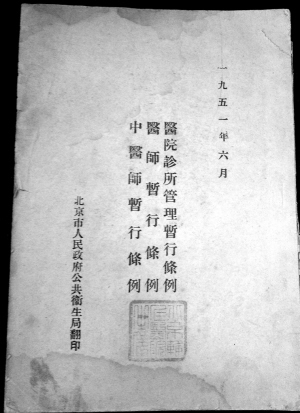 一九五一年六月
醫院診所管理暫行條例
醫師暫行條例
中醫師暫行條例
北京市人民政府公共衛生局翻印